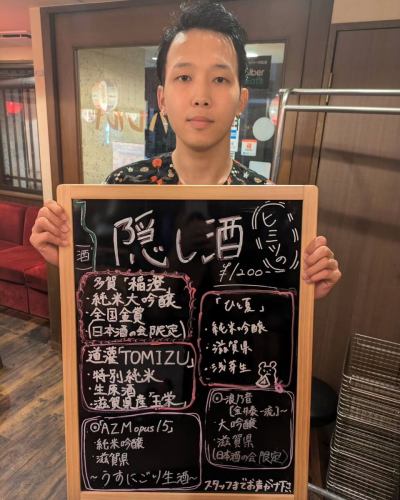 酒
隠し酒
ヒミツの
¥1200-
多賀「稲澄」
・純米大吟醸
・全国金賞
(日本酒の会限定)
道灌「TOMIZU」
・特別純米
・生原酒
・滋賀県産玉栄
◎AZM opus 15」
・純米吟醸
・滋賀県
〜うすにごり生酒〜
「ひと夏」
・純米吟醸
・滋賀県
・浅茅生
◎浪乃音
・大吟醸
・滋賀県
(日本酒の会限定)
スタッフまでお声がけ下さい
Uber